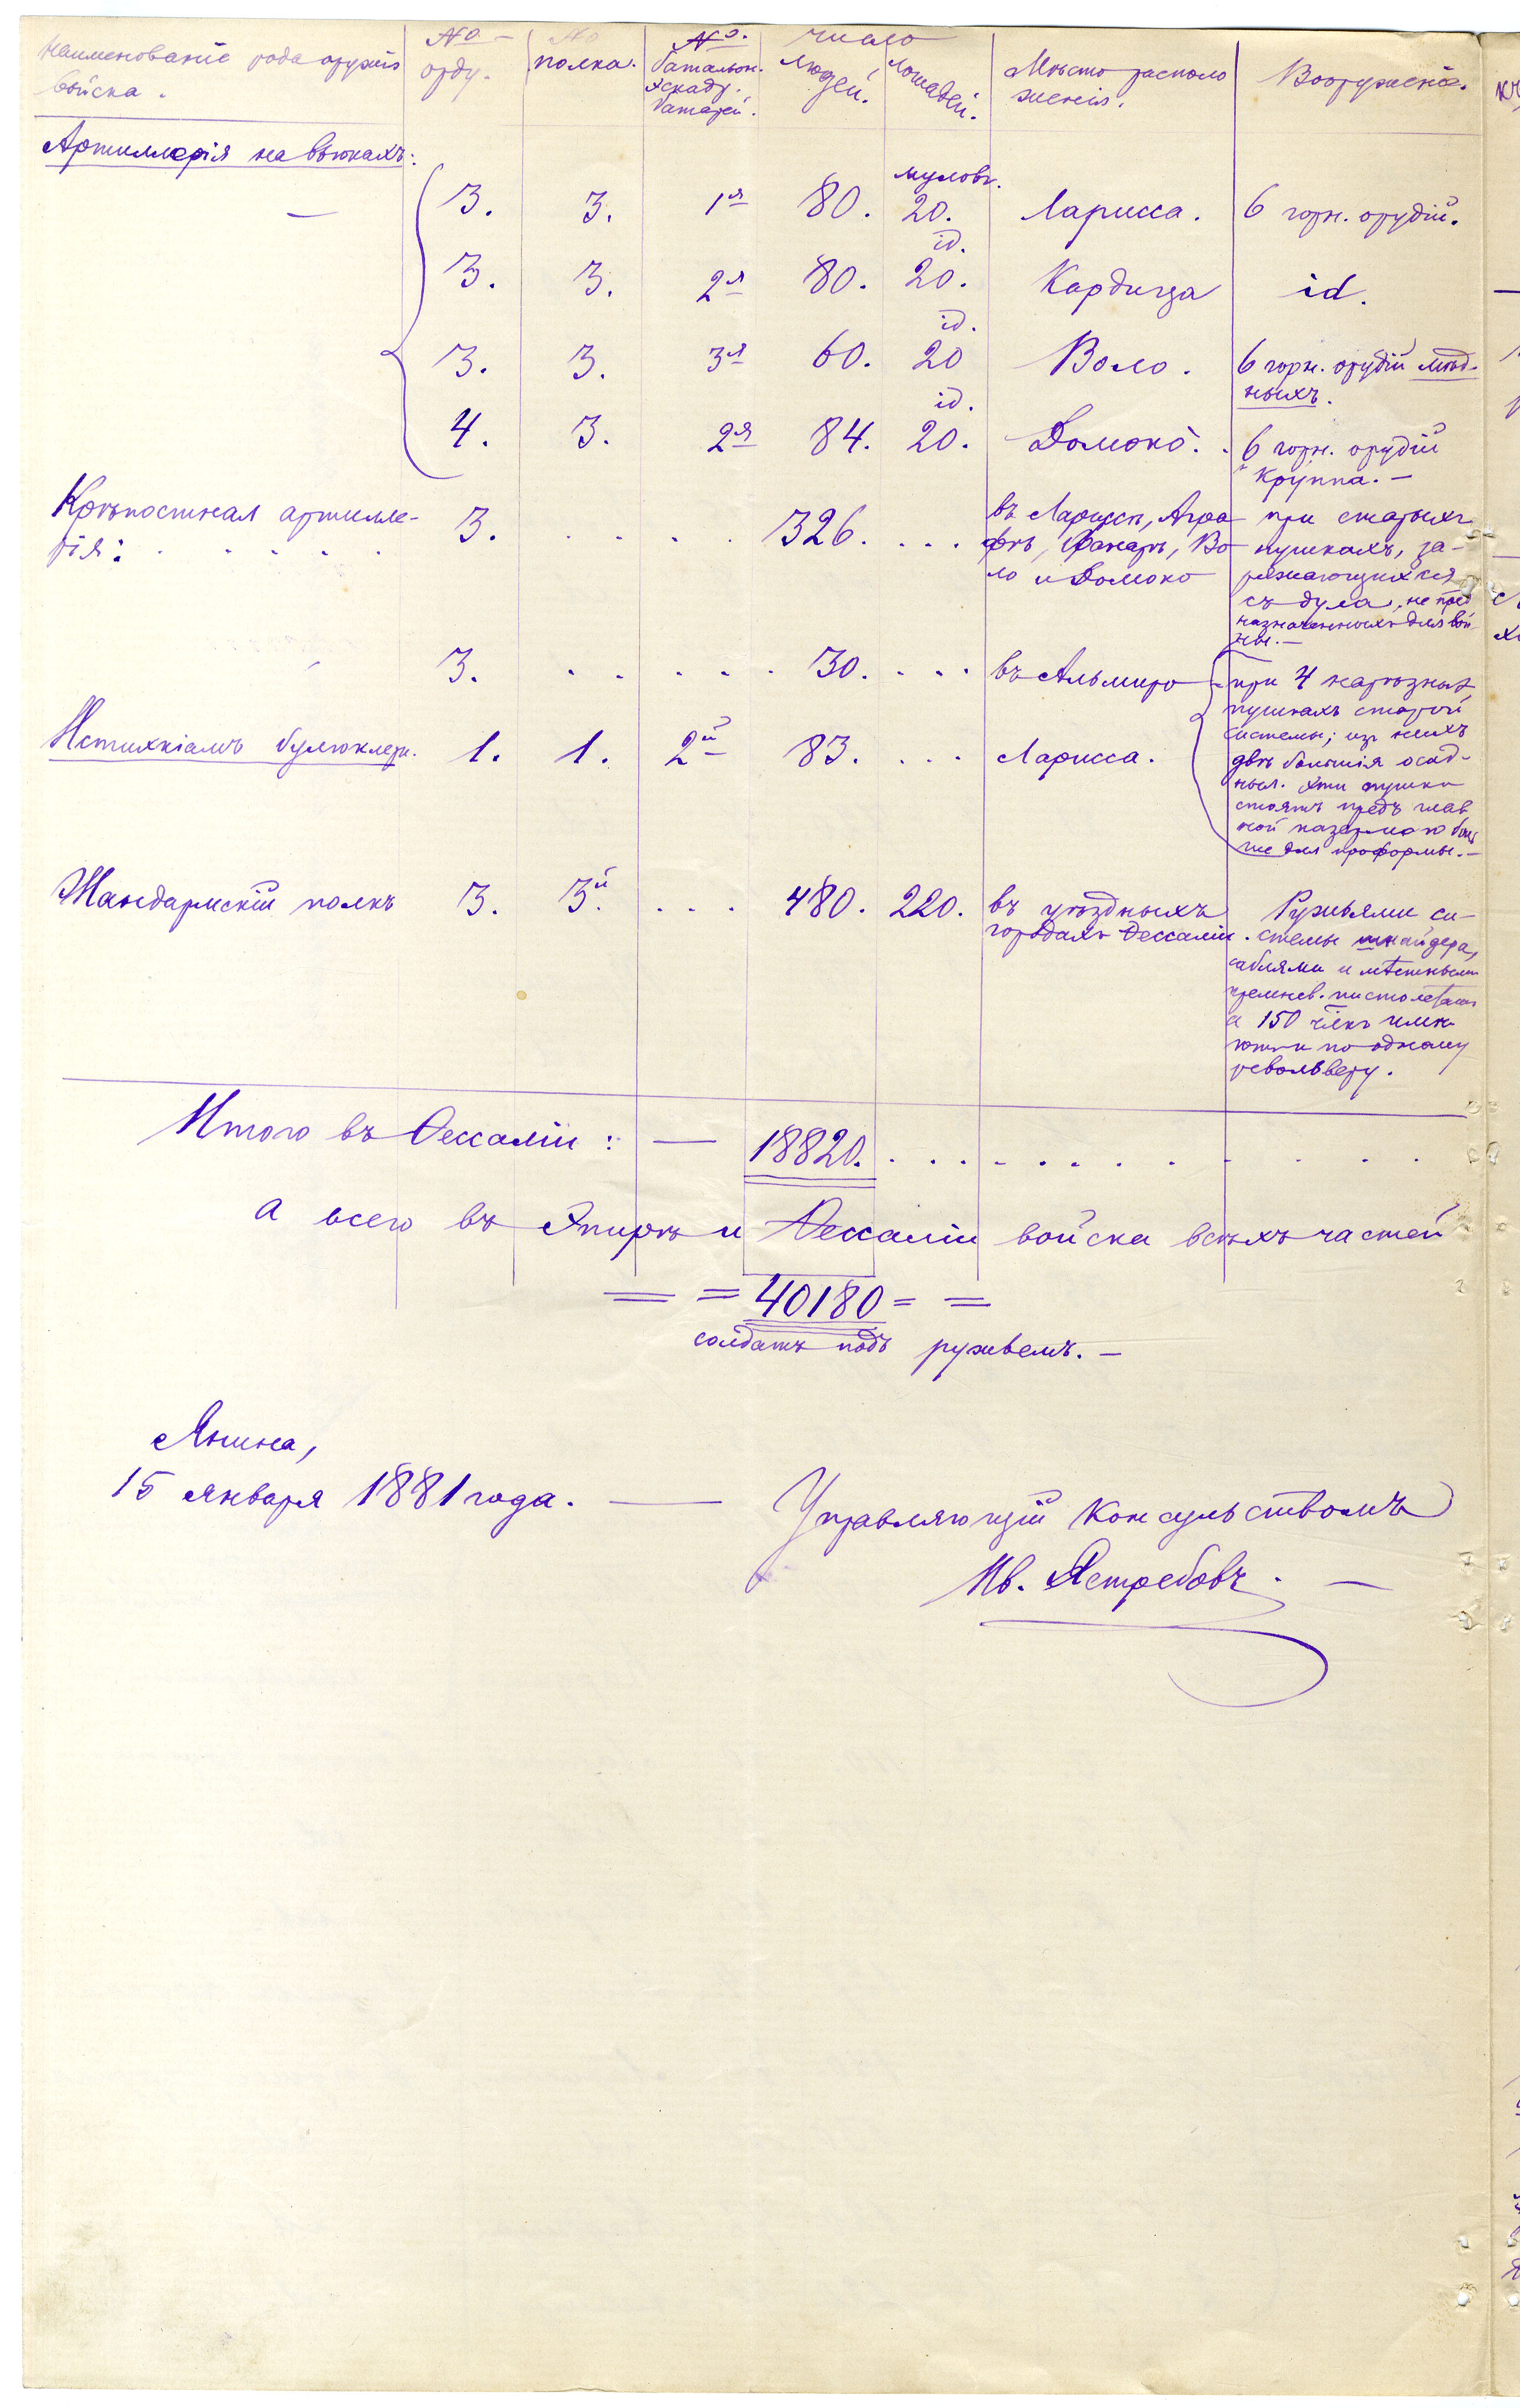 Наименованіе рода оружія войска.
№ орду.
№ полка.
№ батальон. эскадр. батареи.
число людей.
лошадей.
Мѣсто расположенія.
Вооруженіе.
Артиллерія на вьюкахъ:
муловъ.
— 3. 3. 1я 80. 20. Ларисса. 6 горн. орудій.
id.
3. 3. 2я 80. 20. Кардица id.
id.
3. 3. 3я 60. 20 Воло. 6 горн. орудій мѣд-
ныхъ.
id.
4. 3. 2я 84. 20. Домоко. 6 горн. орудій
Круппа. —
Крѣпостная артилле-
рія: 3. . . . . 326. . . .
въ Лариссѣ, Агра-
фѣ, Фанарѣ, Во-
ло и Домоко
при старыхъ
пушкахъ, за-
ряжающихся
съ дула, не пред
назначенныхъ для вой-
ны. —
3. . . . . . 30. . . . въ Альмиро
при 4 нарѣзных
пушкахъ старой
системы; изъ нихъ
двѣ большія осад-
ныя. Эти пушки
стоятъ предъ глав
ной казармою
же для проформы. —
Истихкіамъ булюклери. 1. 1. 2й 83. . . . Ларисса.
Жандармскій полкъ 3. 3й . . . 480. 220.
въ уѣздныхъ
городахъ Ѳессаліи.
Ружьями си-
стемы шнайдера,
саблями и мѣстными
кремнев. пистолетами
а 150 члкъ имѣ-
ютъ и по одному
револьверу.
Итого въ Ѳессаліи: — 18820. . . . . . . . . . . .
А всего въ Эпирѣ и Ѳессаліи войска всѣхъ частей
= = 40180 = =
солдатъ подъ ружьемъ. —
Янина,
15 января 1881 года. —
Управляющій Консульствомъ
Ив. Ястребовъ. —